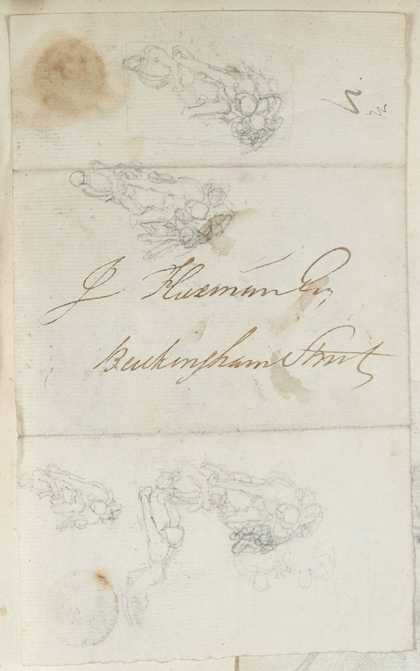 J Flaxman Esq
Buckingham Street